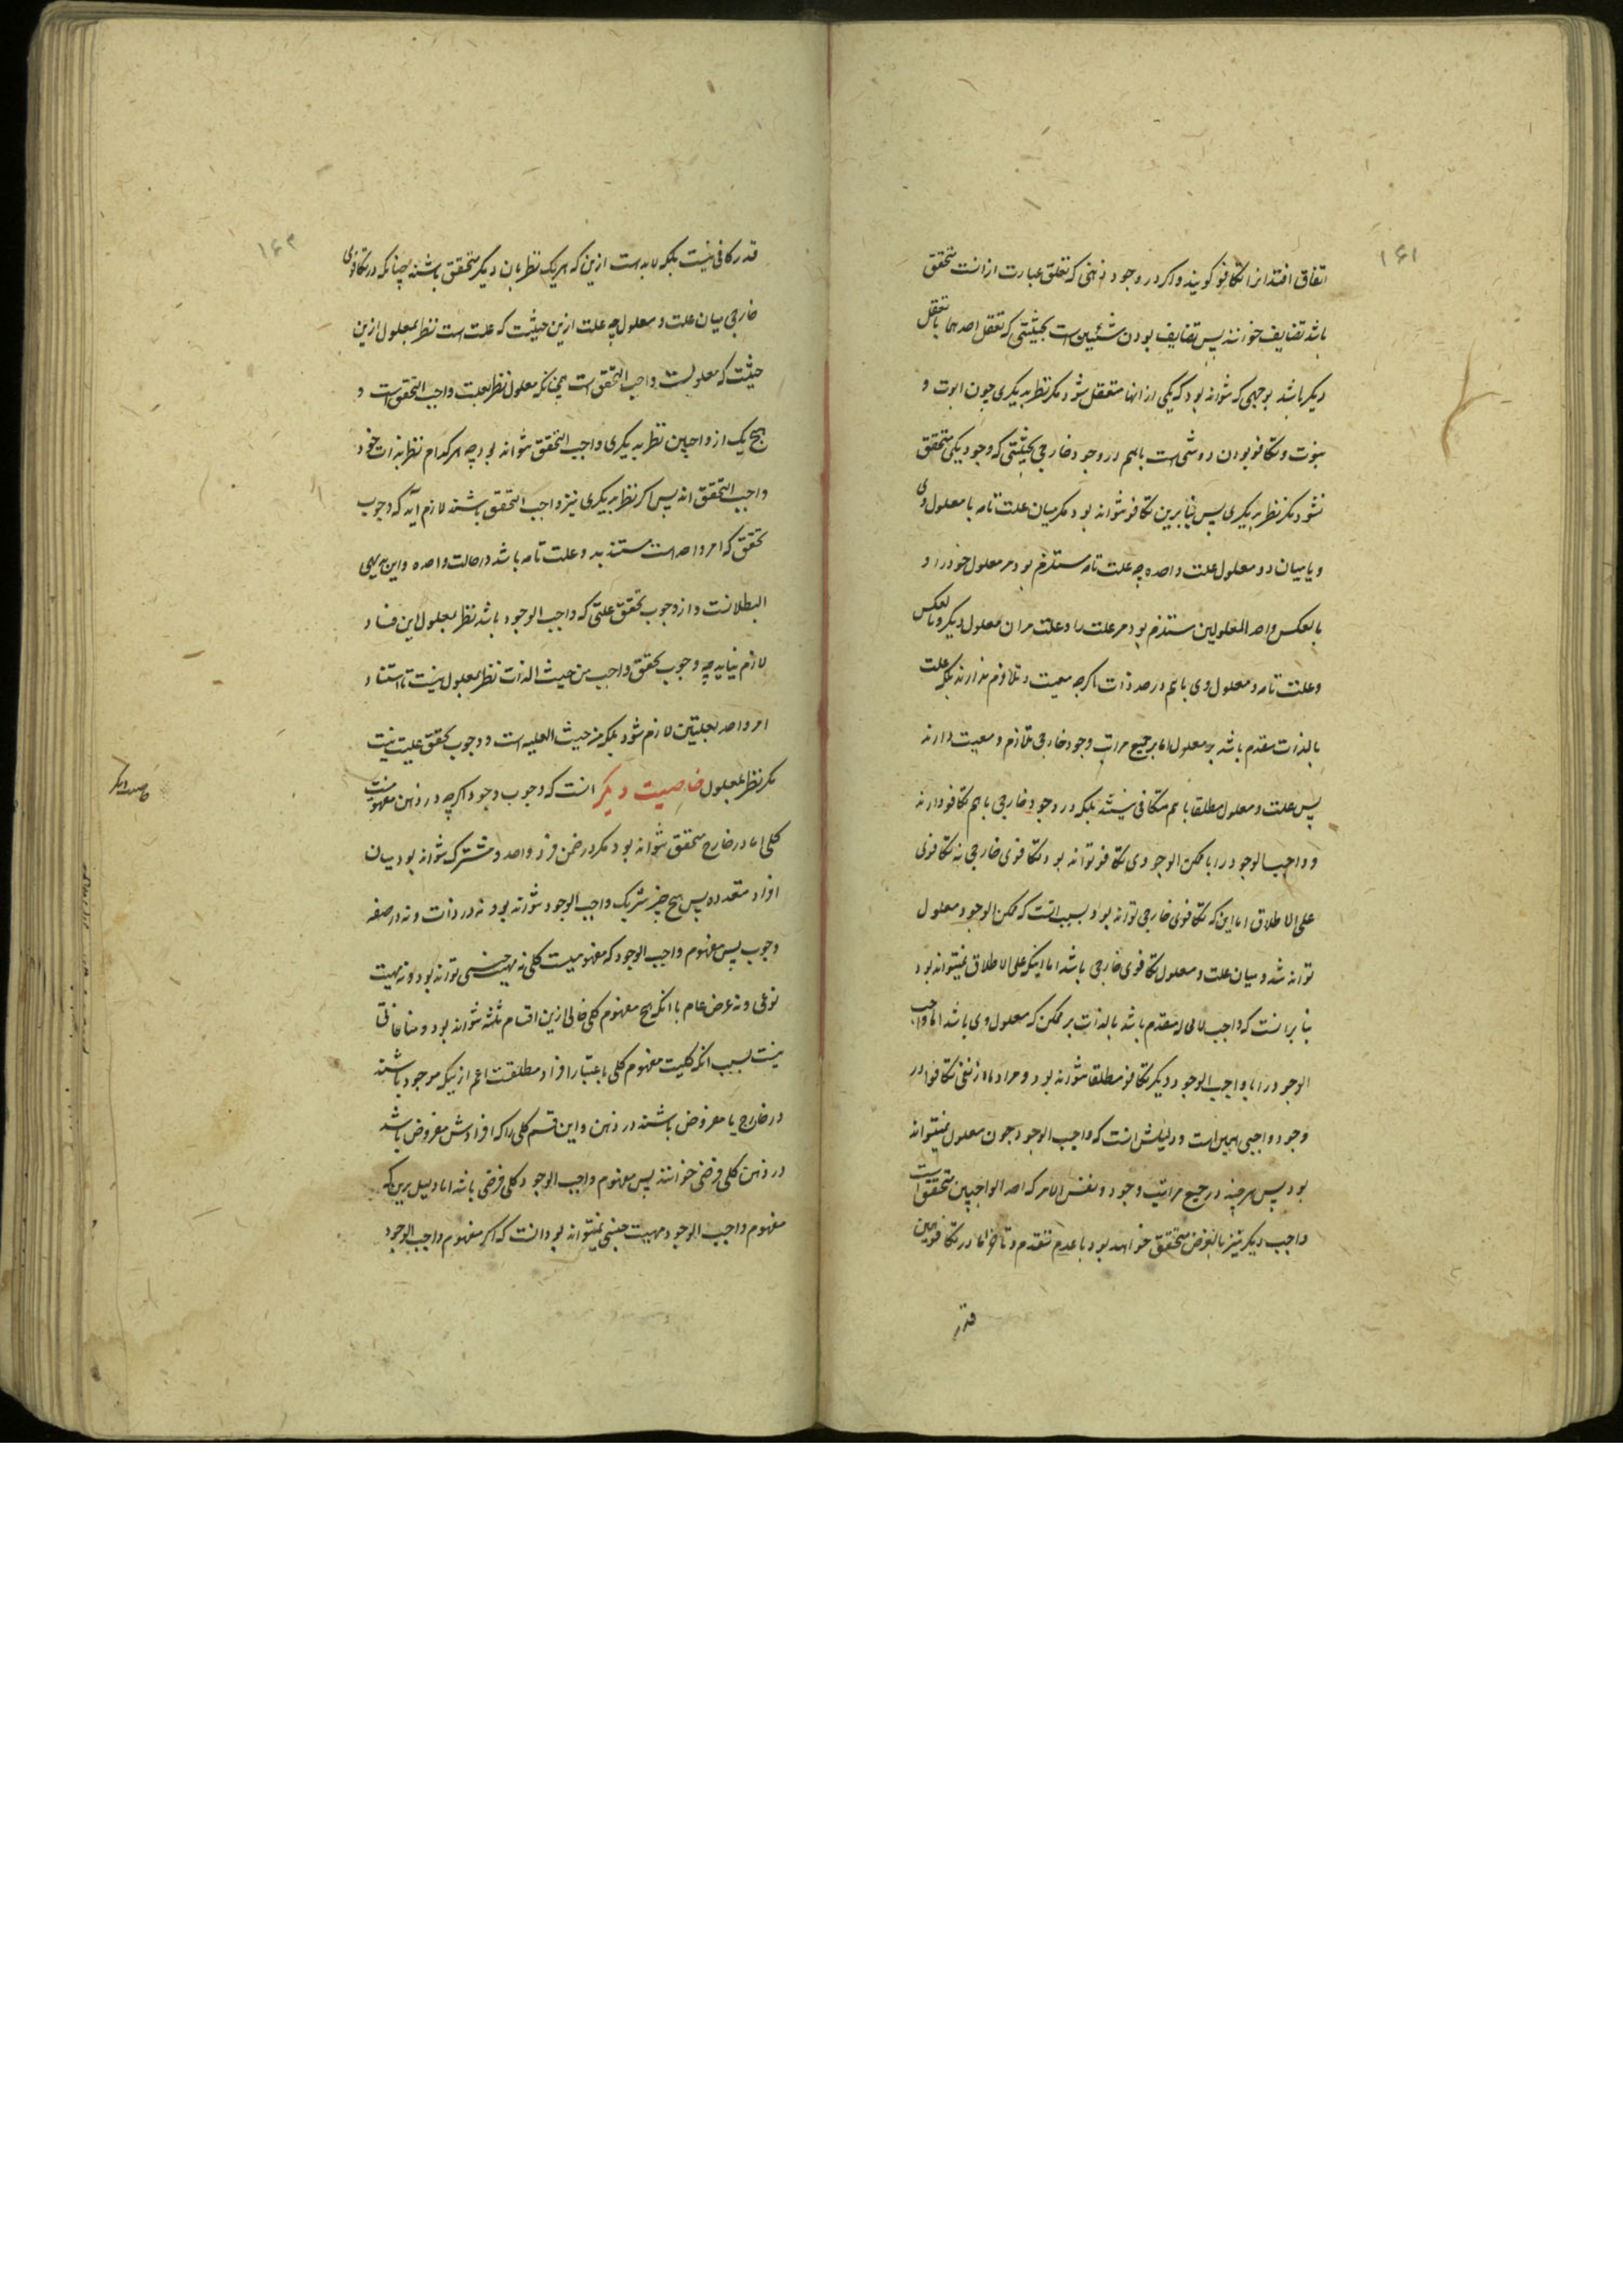 ۱۶۱
اتفاق افتد انرا تکافو کویند و اکر در وجود ذهنی که تعلق عبارت از انست متحقق
باشد تضایف خوانند پس تضایف بودن شیئین است بحیثیتی که تعقل احدهما با تعقل
دیکر باشد بوجهی که نتواند بود که یکی از انها متعقل شود مکر نظر بدیکری چون ابوت و
بنوت و تکافو بودن دو شی است باهم در وجود خارجی بحیثیتی که وجود یکی متحقق
نشود مکر نظر بدیکری پس بنابرین تکافو نتواند بود مکر میان علت تامه با معلول وی
و یا میان دو معلول علت واحده چه علت تامه مستلزم بود مر معلول خود را و
بالعکس و احد المعلولین مستلزم بود مر علت را و علت مر ان معلول دیکر و بالعکس
و علت تامه و معلول وی باهم در حد ذات اکرچه معیت و تلازم ندارند بلکه علت
بالذات مقدم باشد بر معلول اما بر جمیع مراتب وجود خارجی تلازم و معیت دارند
پس علت و معلول مطلقا باهم متکافی نیستند بلکه در وجود خارجی باهم تکافو دارند
و واجب الوجود را با ممکن الوجودی تکافو تواند بود تکافوی خارجی نه تکافوی
علی الاطلاق اما این که تکافوی خارجی تواند بود بسبب انست که ممکن الوجود معلول
تواند شد و میان علت و معلول تکافوی خارجی باشد اما اینکه علی الاطلاق نمیتواند بود
بنابر انست که واجب لا محاله متقدم باشد بالذات بر ممکن که معلول وی باشد اما واجب
الوجود را با واجب الوجود دیکر تکافو مطلقا نتواند بود و مراد ما از نفی تکافوا در
وجود واجبی همین است و دلیلش انست که واجب الوجود چون معلول نمیتواند
بود پس هر چند در جمیع مراتب وجود و نفس الامر که احد الواجبین متحقق است
واجب دیکر نیز بالفرض متحقق خواهد بود با عدم تقدم و تاخر اما در تکافو همین
قدر
۱۶۲
قدر کافی نیست بلکه لابد است ازین که هر یک نظر بان دیکر متحقق باشند چنانکه در تکافوی
خارجی میان علت و معلول چه علت ازین حیثیت که علت است نظر بمعلول ازین
حیثیت که معلولست واجب التحقق است همچنانکه معلول نظر بعلت واجب التحقق است و
هیچ یک از واجبین نظر بدیکری واجب التحقق نتواند بود چه هر کدام نظر بذات خود
واجب التحقق اند پس اکر نظر بدیکری نیز واجب التحقق باشند لازم آید که وجوب
تحقق که امر واحد است مستند بدو علت تامه باشد در حالت واحده و این بدیهی
البطلانست و از وجوب تحقق علتی که واجب الوجود باشد نظر بمعلول این فساد
لازم نیاید چه وجوب تحقق واجب من حیث الذات نظر بمعلول نیست تا استناد
امر واحد بعلتین لازم شود بلکه من حیث العلیه است و وجوب تحقق علیت نیست
مکر نظر بمعلول خاصیت دیکر انست که وجوب وجود اکرچه در ذهن مفهومیست
خاصیت دیکر
کلی اما در خارج متحقق نتواند بود مکر در ضمن فرد واحد و مشترک نتواند بود میان
افراد متعدده پس هیچ چیز شریک واجب الوجود نتواند بود نه در ذات و نه در صفه
وجوب پس مفهوم واجب الوجود که مفهومیست کلی نه مهیت جنسی تواند بود و نه مهیت
نوعی و نه عرض عام با انکه هیچ مفهوم کلی خالی ازین اقسام ثلثه نتواند بود و منافاتی
نیست بسبب انکه کلیت مفهوم کلی باعتبار افراد مطلقست اعم ازینکه موجود باشند
در خارج یا مفروض باشند در ذهن و این قسم کلی را که افرادش مفروض باشد
در ذهن کلی فرضی خوانند پس مفهوم واجب الوجود کلی فرضی باشد اما دلیل برین که
مفهوم واجب الوجود مهیت جنسی نمیتواند بود انست که اکر مفهوم واجب الوجود